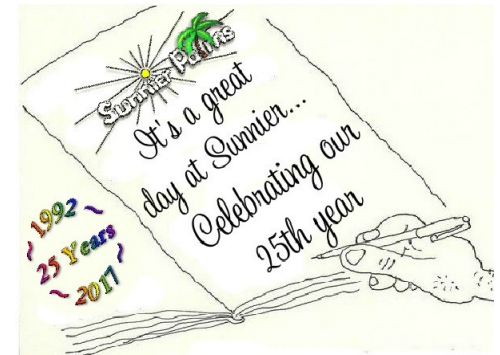 Sunnier Palms
It's a great
day at Sunnier...
Celebrating our
25th year
~ 1992 ~
~ 25 Years ~
~ 2017 ~